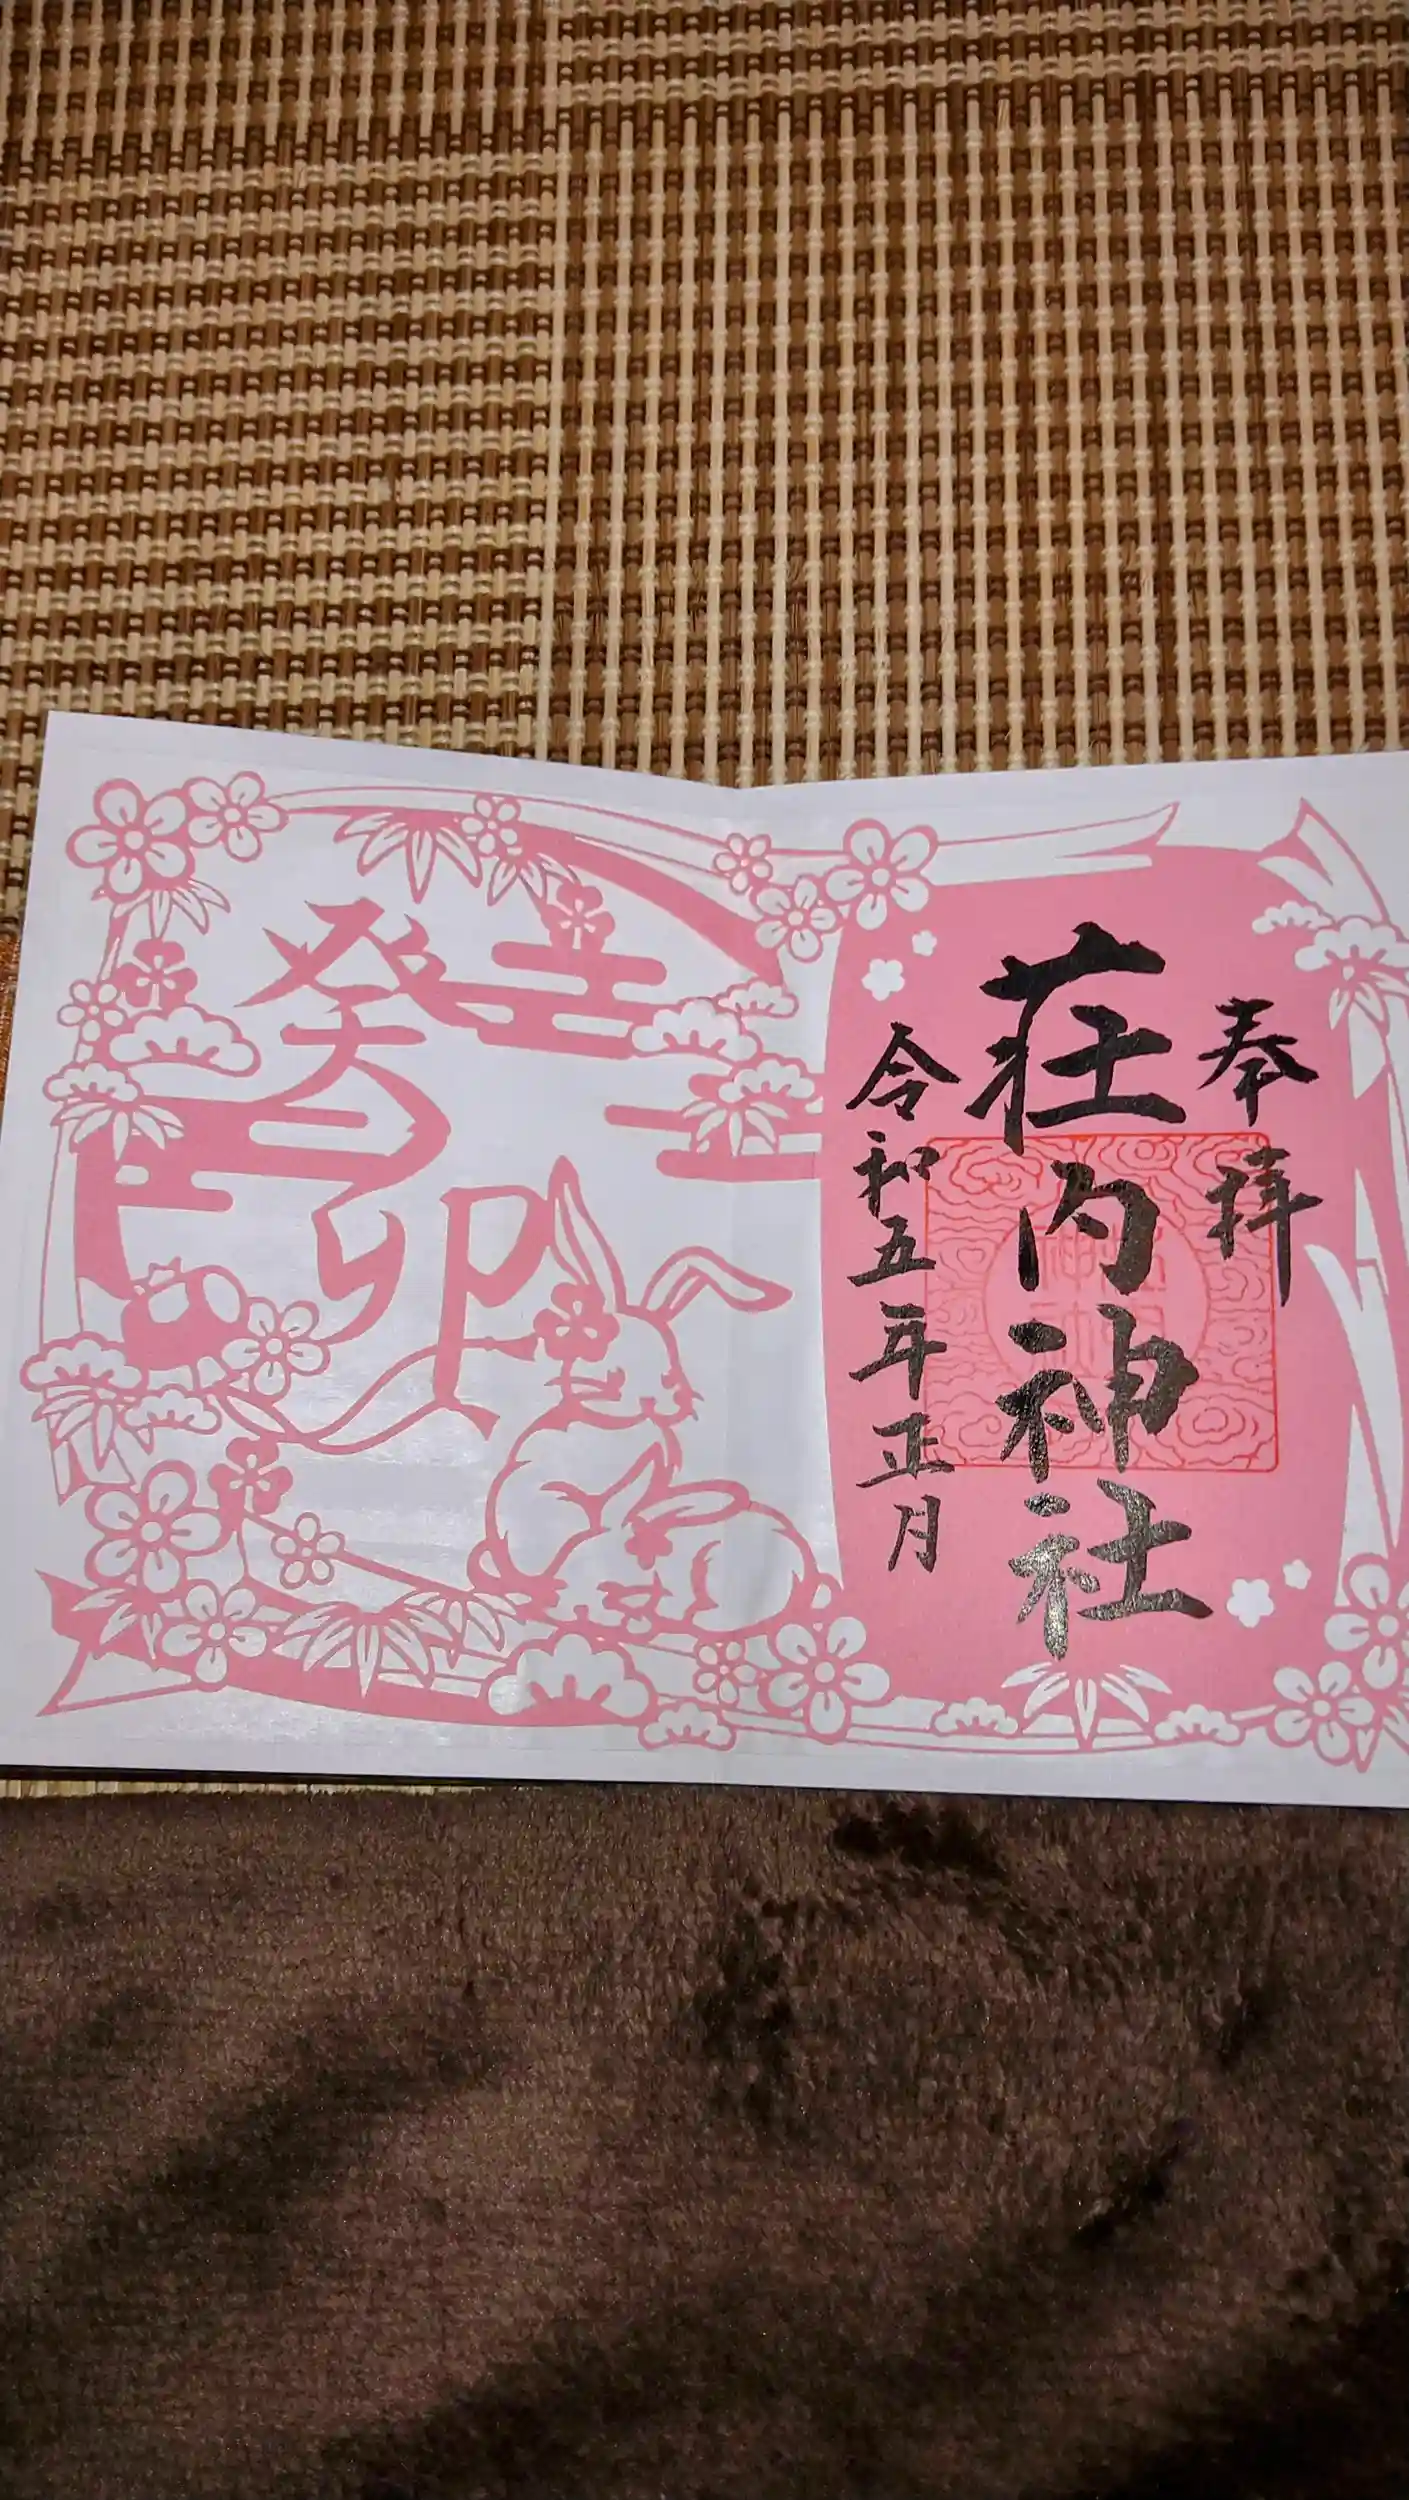 奉拝
荘内神社
令和五年正月
癸卯